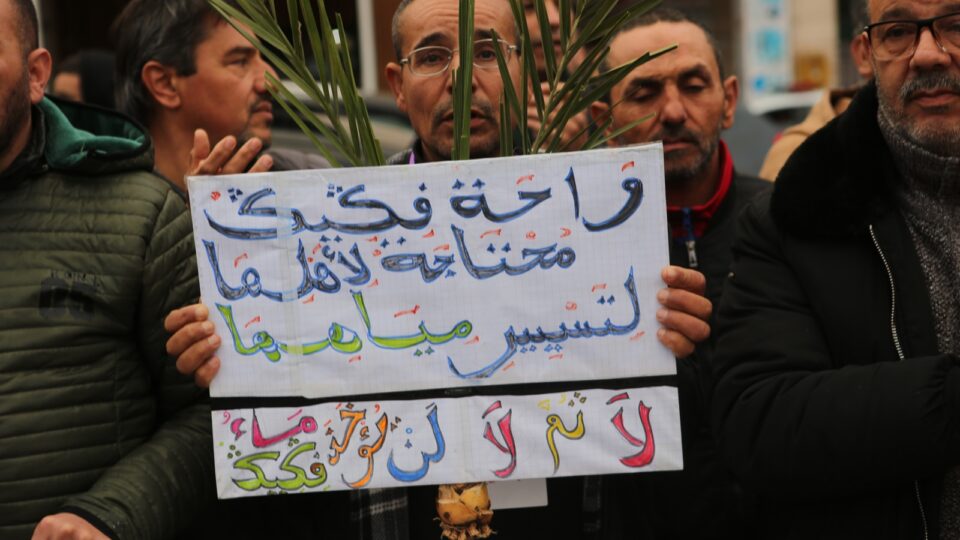 وَاحة فكيك
محتاجة لأهلها
لتسيير مياهها
لَا ثُم لَا لَنْ يُؤخذ مَاءُ فكيك